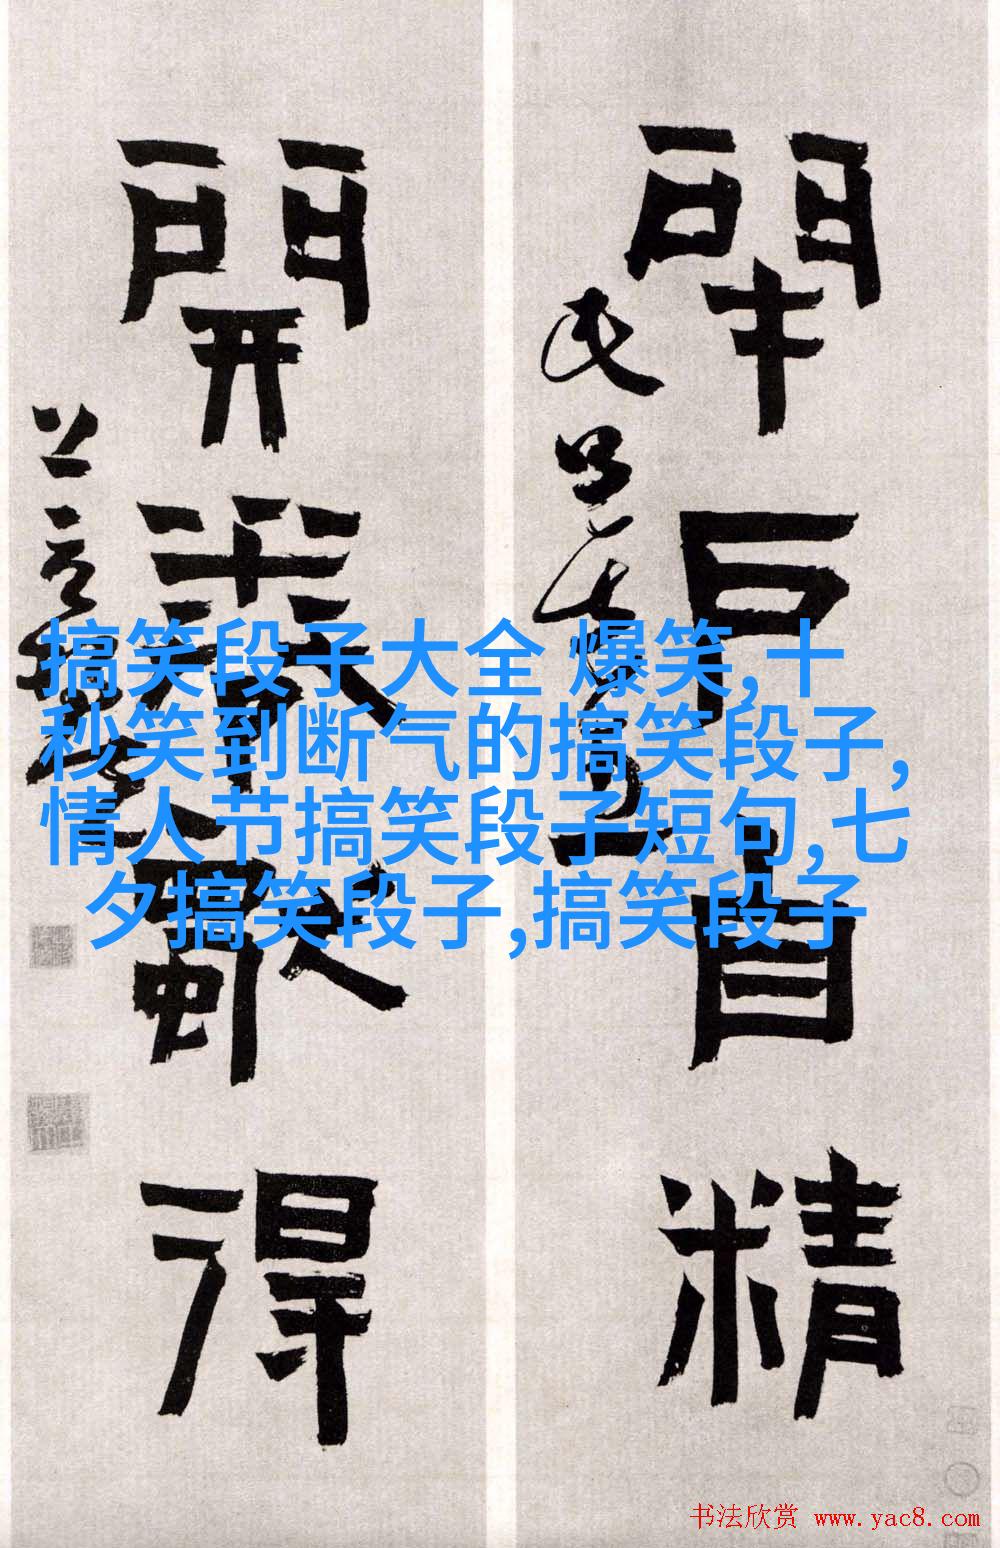 閉戶自精
開卷獨得
搞笑段子大全 爆笑,十
秒笑到断气的搞笑段子,
情人节搞笑段子短句,七
夕搞笑段子,搞笑段子
书法欣赏 www.yac8.com